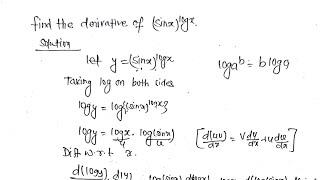 find the derivative of (sinx)^logx.
Solution
let y = (sinx)^logx
log a^b = b log a
Taking log on both sides
log y = log{(sinx)^logx}
log y = logx . log(sinx)
v u
[d(uv)/dx = v du/dx + u dv/dx]
Diff w.r.t x.
d(logy) dy